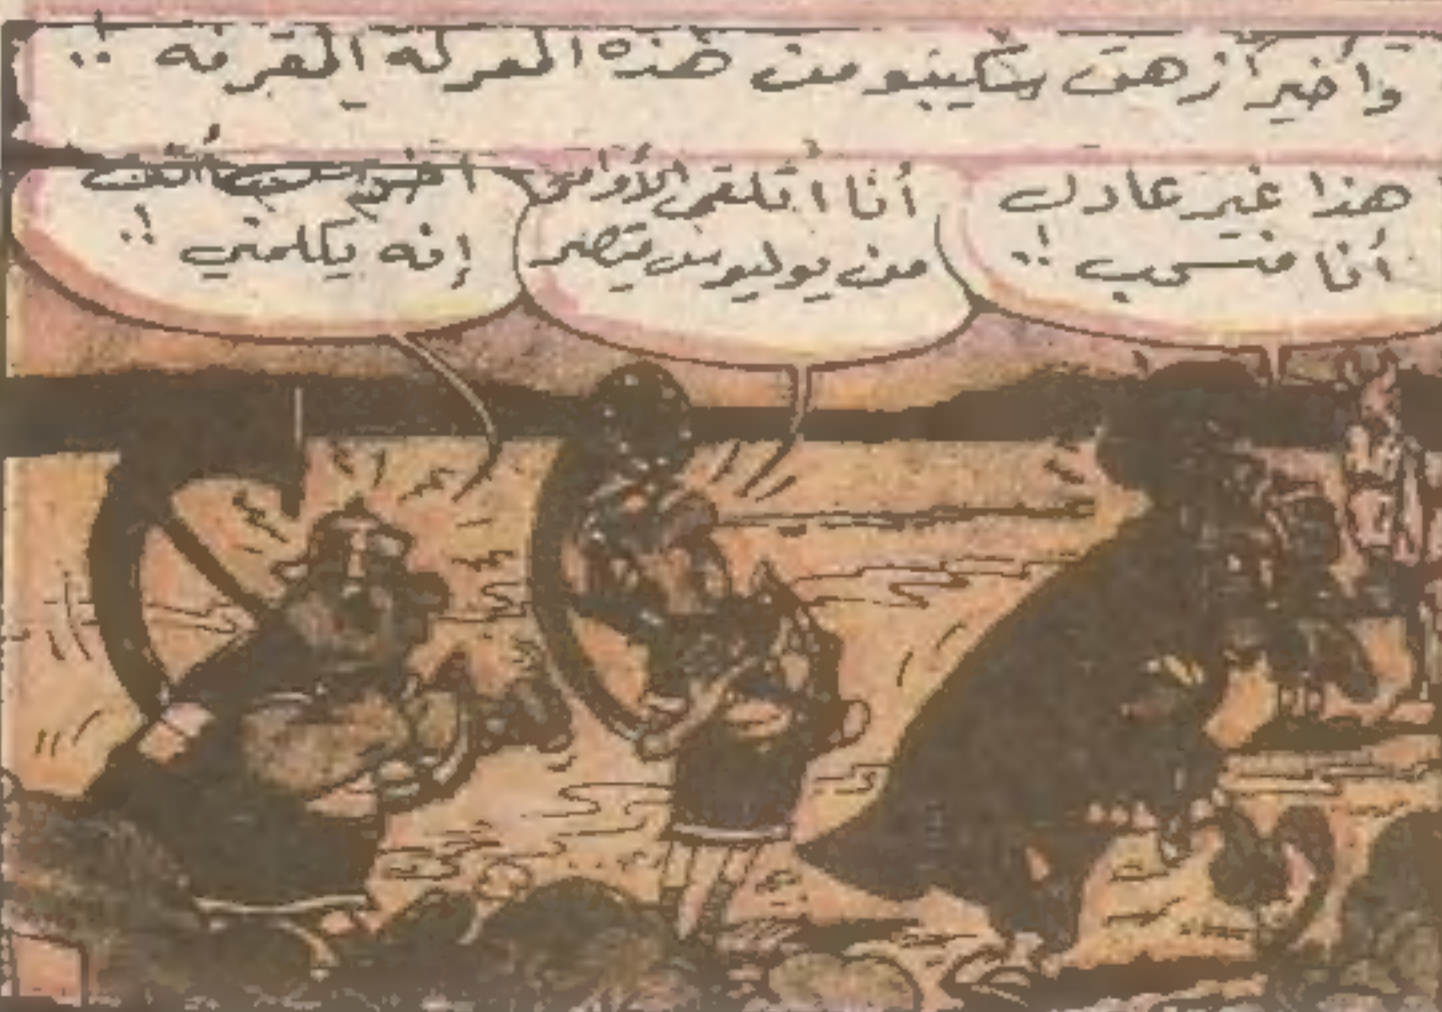 وأخيراً زهق سكيبيو من هذه المعركة المقرفة !!
هذا غير عادل
أنا منسحب !!
أنا أتلقى الأوامر
من يوليوس قيصر
إنه يكلمني !!